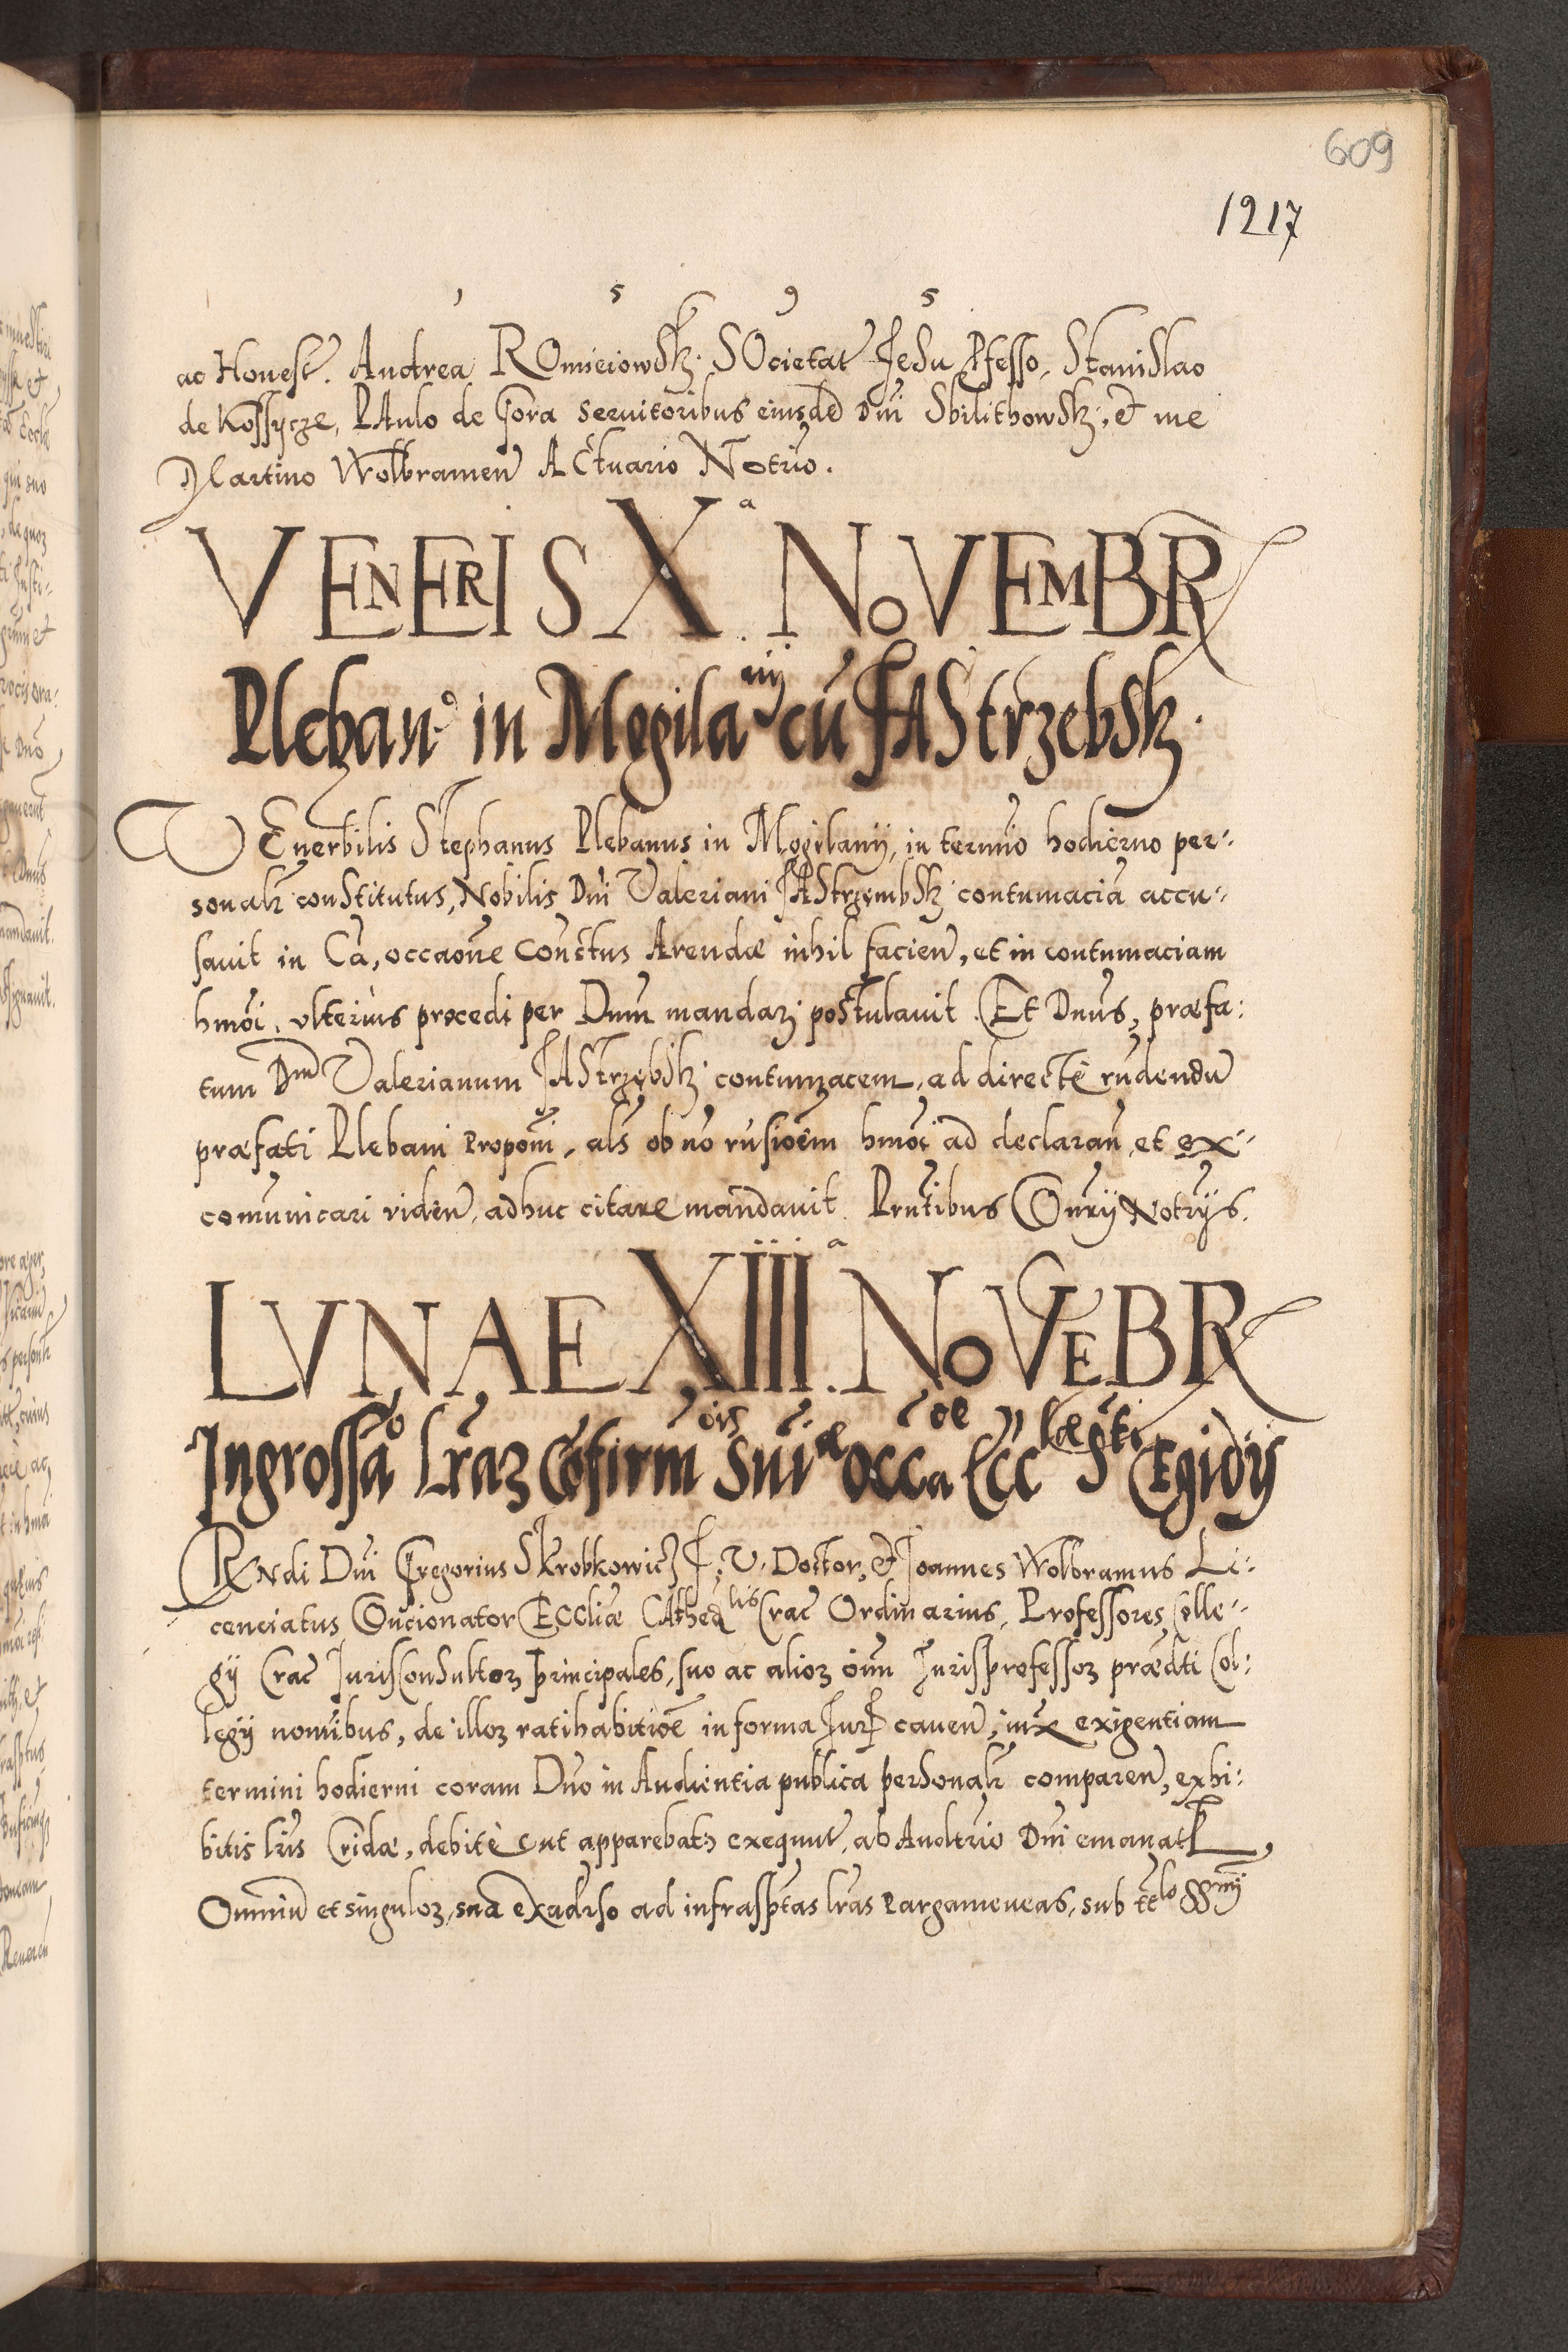 609
1217
1 5 9 5
ac Honest. Andrea ROmieiowSk: SOcietat JeSu Pfesso, StaniSlao
de Kossycze, PAulo de Gora seruitoribus eiusdẽ Dni Sbilithowsk: et me
Martino Wolbramen ACtuario Notrio.
VENERIS Xᵃ. NOVEMBR
Pleban⁹ in Mogilanij cũ JAStrzebsk.
VEnerbilis Stephanus Plebanus in Mogilanij, in termino hodierno per-
sonalr conStitutus, Nobilis Dni Valeriani JAStrzembsk contumaciã accu-
sauit in Cã, occaone Conctus Arendæ nihil facien, et in contumaciam
hmoi, vlterius procedi per Dnm mandari poStulauit. Et Dnus, præfa:
tum Dnm Valerianum JAStrzębsk contumacem, ad directè rndendu
præfati Plebani Proponi, als ob no rnsioem hmoi ad declaran et ex-
comunicari viden, adhuc citare mandauit. Prntibus Conrij Notrijs.
LVNAE XIIIᵃ. NOVEBR
Ingrossao Lraꝝ Cofirmois Sniæ occaoe Ecclæ Sti Egidij
RNdi Dni Gregorius Skrobkowicz J. V. Doctor, et Joannes Wolbramus Li-
cenciatus Concionator Eccliæ CAthedlis Crac Ordinarius, Professores Colle-
gij Crac JurisConSultoꝝ principales, suo ac alioꝝ oim Jurisprofessoꝝ prædti Col:
legij nomibus, de illoꝝ ratihabitioe in forma Jur cauen, iux exigentiam
termini hodierni coram Dno in Audientia publica perSonalr comparen, exhi:
bitis lris Cridæ, debitè ut apparebat exequut, ab Auditrio Dni emanat
Omniũ et singuloꝝ, sua exaduso ad infrasptas lras Pargameneas, sub ttlo